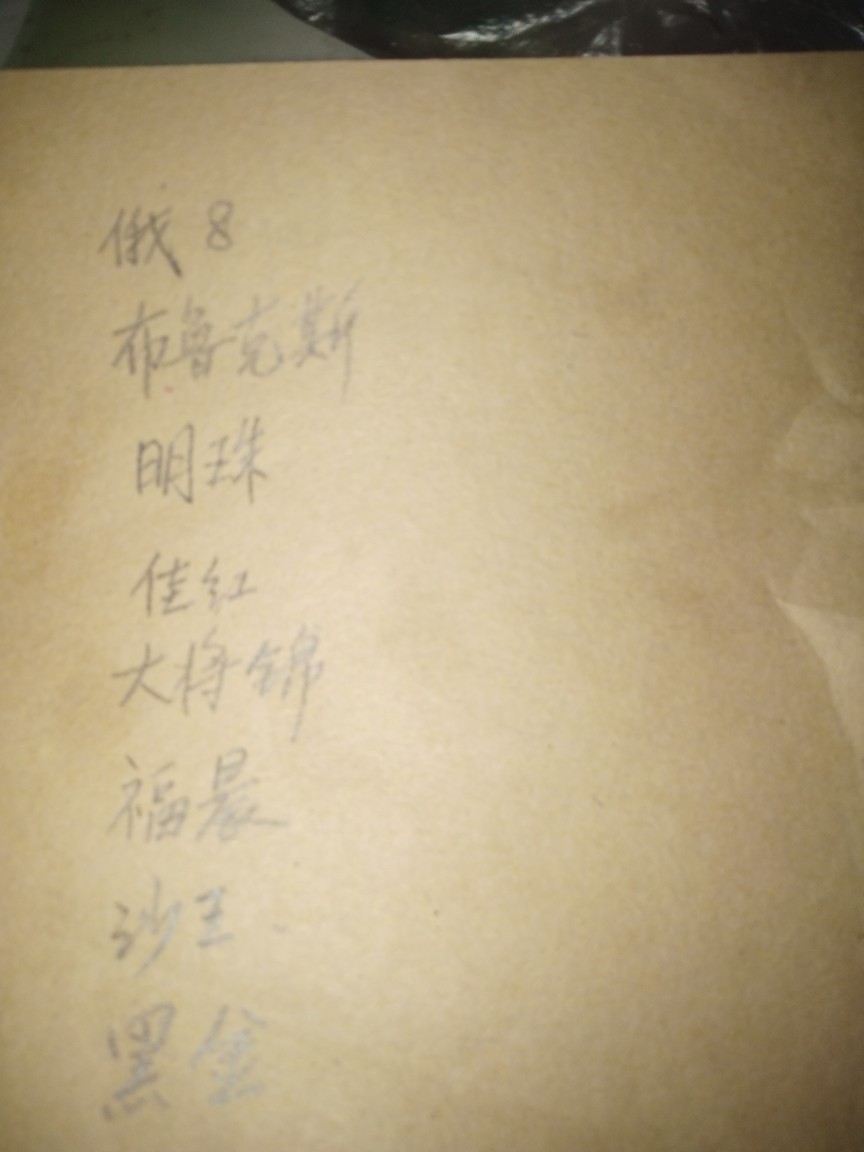 俄8
布鲁克斯
明珠
佳红
大将锦
福晨
沙王
黑金